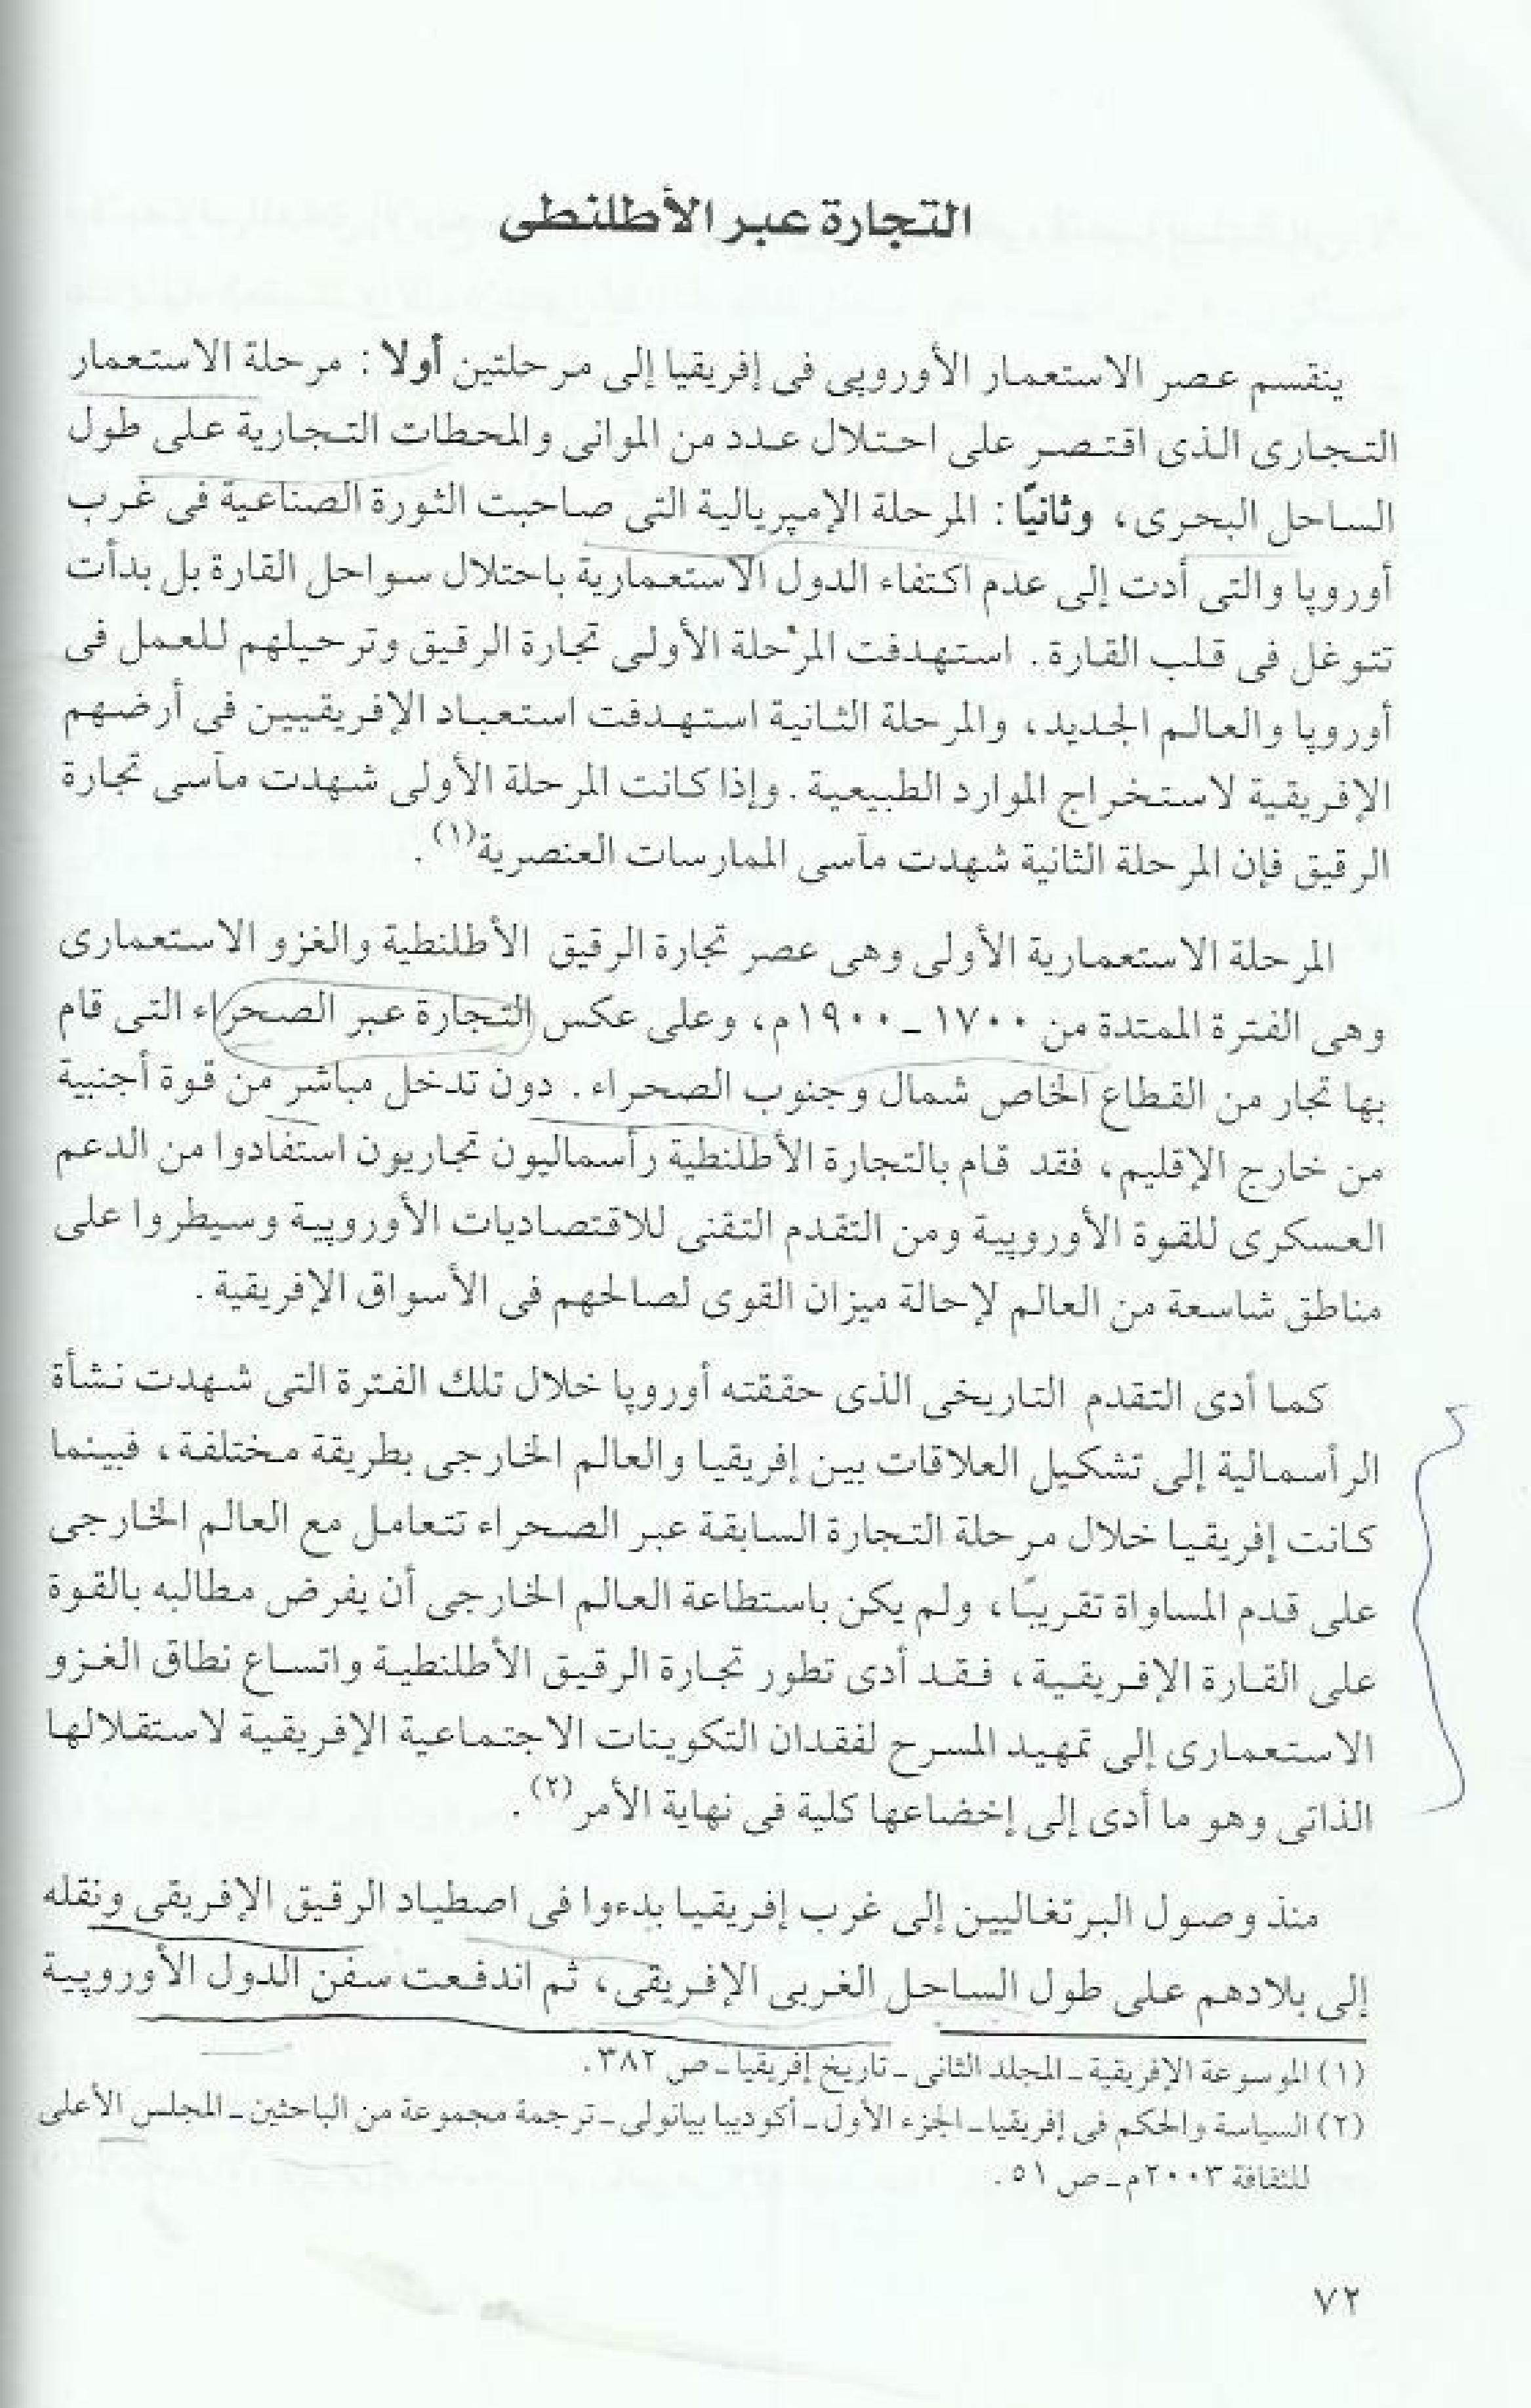 التجارة عبر الأطلنطى
ينقسم عصر الاستعمار الأوروپى فى إفريقيا إلى مرحلتين أولا : مرحلة الاستعمار
التجارى الذى اقتصر على احتلال عدد من الموانى والمحطات التجارية على طول
الساحل البحرى، وثانيًا : المرحلة الإمپريالية التى صاحبت الثورة الصناعية فى غرب
أوروپا والتى أدت إلى عدم اكتفاء الدول الاستعمارية باحتلال سواحل القارة بل بدأت
تتوغل فى قلب القارة. استهدفت المرحلة الأولى تجارة الرقيق وترحيلهم للعمل فى
أوروپا والعالم الجديد، والمرحلة الثانية استهدفت استعباد الإفريقيين فى أرضهم
الإفريقية لاستخراج الموارد الطبيعية. وإذا كانت المرحلة الأولى شهدت مآسى تجارة
الرقيق فإن المرحلة الثانية شهدت مآسى الممارسات العنصرية(١).
المرحلة الاستعمارية الأولى وهى عصر تجارة الرقيق الأطلنطية والغزو الاستعمارى
وهى الفترة الممتدة من ١٧٠٠ ـ ١٩٠٠م، وعلى عكس التجارة عبر الصحراء التى قام
بها تجار من القطاع الخاص شمال وجنوب الصحراء. دون تدخل مباشر من قوة أجنبية
من خارج الإقليم، فقد قام بالتجارة الأطلنطية رأسماليون تجاريون استفادوا من الدعم
العسكرى للقوة الأوروپية ومن التقدم التقنى للاقتصاديات الأوروپية وسيطروا على
مناطق شاسعة من العالم لإحالة ميزان القوى لصالحهم فى الأسواق الإفريقية.
كما أدى التقدم التاريخى الذى حققته أوروپا خلال تلك الفترة التى شهدت نشأة
الرأسمالية إلى تشكيل العلاقات بين إفريقيا والعالم الخارجى بطريقة مختلفة، فبينما
كانت إفريقيا خلال مرحلة التجارة السابقة عبر الصحراء تتعامل مع العالم الخارجى
على قدم المساواة تقريبًا، ولم يكن باستطاعة العالم الخارجى أن يفرض مطالبه بالقوة
على القارة الإفريقية، فقد أدى تطور تجارة الرقيق الأطلنطية واتساع نطاق الغزو
الاستعمارى إلى تمهيد المسرح لفقدان التكوينات الاجتماعية الإفريقية لاستقلالها
الذاتى وهو ما أدى إلى إخضاعها كلية فى نهاية الأمر(٢).
منذ وصول البرتغاليين إلى غرب إفريقيا بدءوا فى اصطياد الرقيق الإفريقى ونقله
إلى بلادهم على طول الساحل الغربى الإفريقى، ثم اندفعت سفن الدول الأوروپية
(١) الموسوعة الإفريقية ـ المجلد الثانى ـ تاريخ إفريقيا ـ ص ٣٨٢.
(٢) السياسة والحكم فى إفريقيا ـ الجزء الأول ـ أكوديبا بيانولى ـ ترجمة مجموعة من الباحثين ـ المجلس الأعلى
للثقافة ٢٠٠٣م ـ ص ٥١.
٧٢